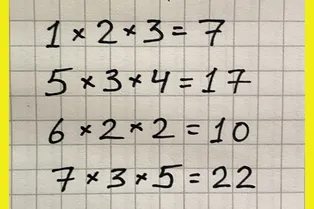 1 × 2 × 3 = 7
5 × 3 × 4 = 17
6 × 2 × 2 = 10
7 × 3 × 5 = 22